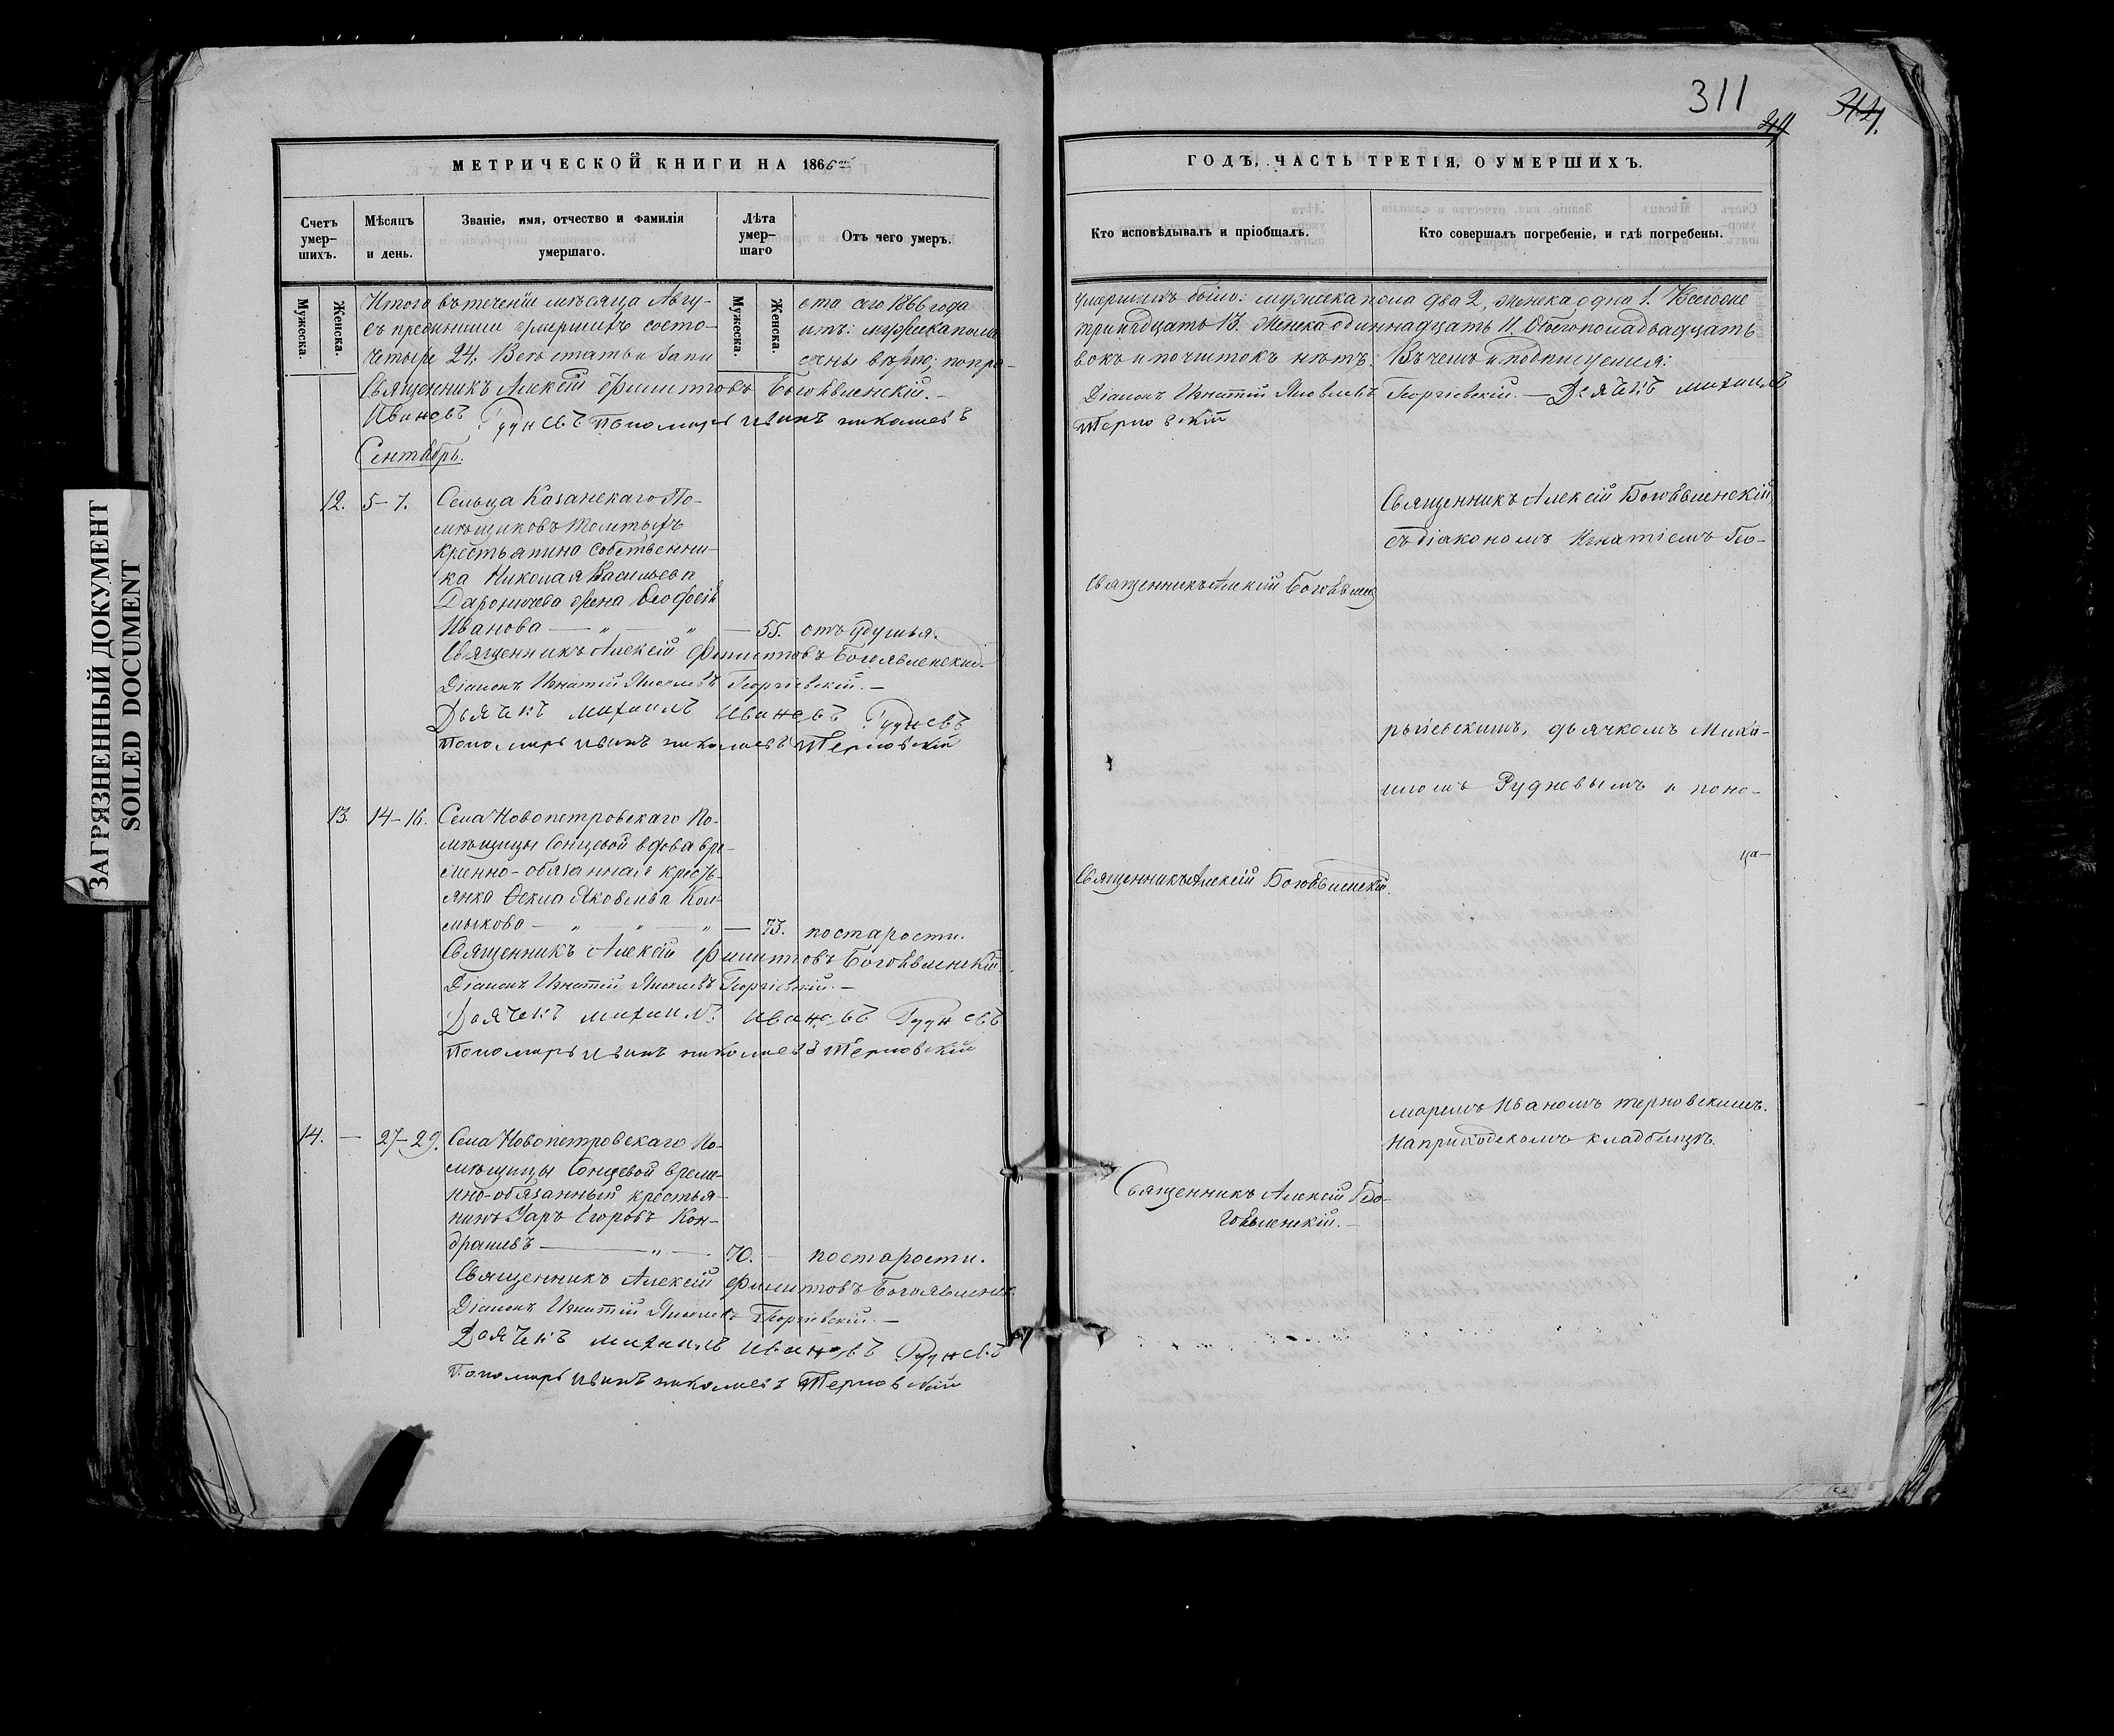 ЗАГРЯЗНЕННЫЙ ДОКУМЕНТ
SOILED DOCUMENT
МЕТРИЧЕСКОЙ КНИГИ НА 1866
Счетъ умер-шихъ.
Мѣсяцъ и день.
Званіе, имя, отчество и фамилія умершаго.
Лѣта умер-шаго
Отъ чего умеръ.
Мужеска.
Женска.
Мужеска.
Женска.
Итого въ теченіи мѣсяца Авгу-
ста сего 1866 года
съ прежними умершихъ состо-
итъ: мужеска пола
четыре 24. Всѣ статьи запи
саны вѣрно; попра-
Священникъ Алексій Филиповъ Богоявленскій.
Ивановъ Рудневъ Пономарь Иванъ Николаевъ
Сентябрь.
12. 5-7. Сельца Казанскаго По-
мѣщиковъ Толстыхъ
крестьянина собственни-
ка Николая Васильева
жена Ѳеодосія
Иванова — 55. отъ удушья.
Священникъ Алексій Филиповъ Богоявленскій.
Діаконъ Игнатій Яковлевъ Георгіевскій.—
Дьячекъ Михаилъ Ивановъ Рудневъ
Пономарь Иванъ Николаевъ Терновскій
13. 14-16. Села Новопетровскаго По-
мѣщицы Сонцевой вдова вре-
менно-обязанная кресть-
янка Ѳекла Яковлева Кол-
мыкова — 73. по старости.
Священникъ Алексій Филиповъ Богоявленскій.
Діаконъ Игнатій Яковлевъ Георгіевскій.—
Дьячекъ Михаилъ Ивановъ Рудневъ
Пономарь Иванъ Николаевъ Терновскій
14. — 27-29. Села Новопетровскаго По-
мѣщицы Сонцевой време-
нно-обязанный крестья-
нинъ Уаръ Егоровъ Кон-
драшевъ — 70. — по старости.
Священникъ Алексій Филиповъ Богоявленск
Діаконъ Игнатій Яковлевъ Георгіевскій.—
Дьячекъ Михаилъ Ивановъ Рудневъ
Пономарь Иванъ Николаевъ Терновскій
311
314.
ГОДѢ, ЧАСТЬ ТРЕТІЯ, О УМЕРШИХЪ.
Кто исповѣдывалъ и пріобщалъ.
Кто совершалъ погребеніе, и гдѣ погребены.
умершихъ было: мужска пола два 2, женска одна 1. Всего же
тринадцать 13. Женска одиннадцать 11. Обоего пола двадцать
вокъ и почистокъ нѣтъ. Въ чемъ и подписуемся:
Діаконъ Игнатій Яковлевъ Георгіевскій.— Дьячекъ Михаилъ
Терновскій
Священникъ Алексій Богоявленскій
съ діакономъ Игнатіемъ Гео-
Священникъ Алексій Богоявленс
ргіевскимъ, дьячкомъ Миха-
иломъ Рудневымъ и поно-
Священникъ Алексій Богоявленскій.
маремъ Иваномъ Терновскимъ.
На приходскомъ кладбищѣ.
Священникъ Алексій Бо-
гоявленскій.—